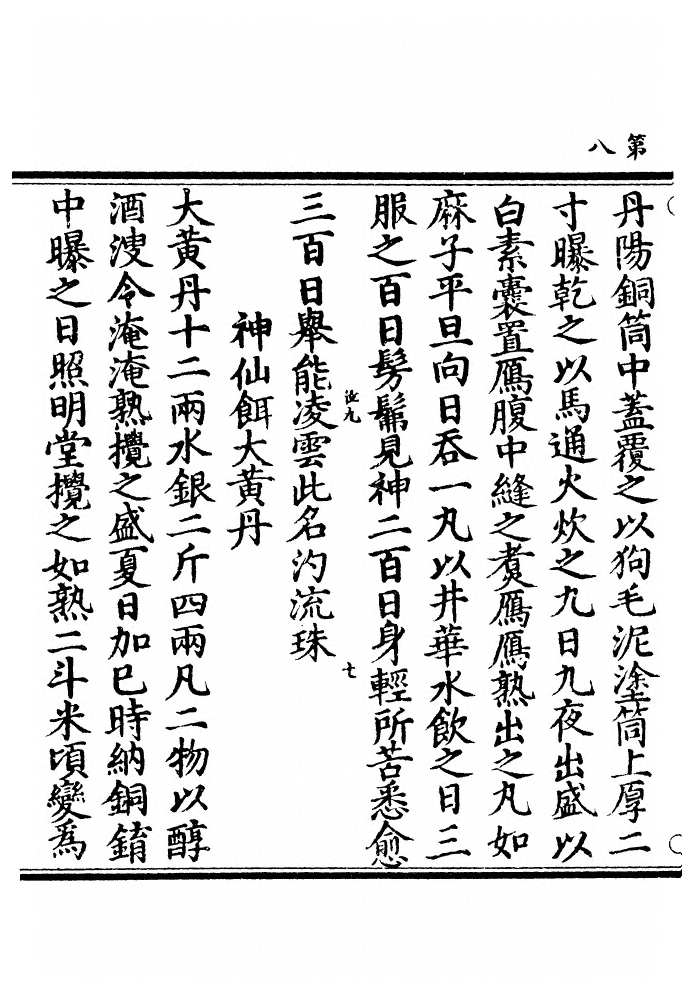 第八
丹陽銅筒中蓋覆之以狗毛泥塗筒上厚二
寸曝乾之以馬通火炊之九日九夜出盛以
白素囊置鴈腹中縫之煑鴈鴈熟出之丸如
麻子平旦向日吞一丸以井華水飲之日三
服之百日髣髴見神二百日身輕所苦悉愈
三百日舉能凌雲此名汋流珠
洫九
七
神仙餌大黃丹
大黃丹十二兩水銀二斤四兩凡二物以醇
酒溲令淹淹熟攪之盛夏日加巳時納銅錥
中曝之日照明堂攪之如熟二斗米頃變為